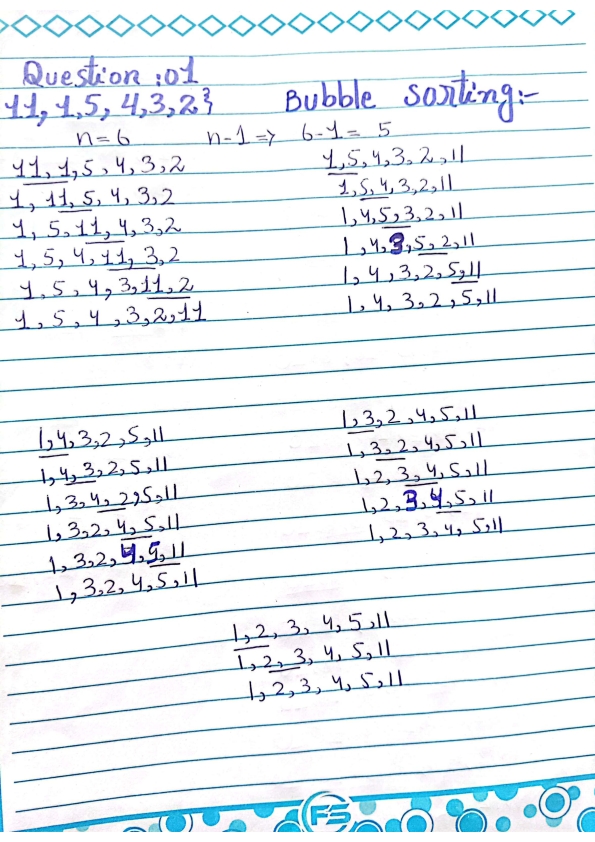 Question :01
11, 1,5, 4,3,2}
Bubble sorting:-
n=6 n-1 => 6-1= 5
11, 1,5, 4, 3, 2
1, 11, 5, 4, 3,2
1, 5,11, 4, 3,2
1, 5, 4, 11, 3,2
1, 5, 4, 3, 11, 2
1, 5, 4, 3, 2, 11
1,5,4,3,2,11
1,5,4,3,2,11
1,4,5,3,2,11
1,4,3,5,2,11
1,4,3,2,5,11
1,4,3,2,5,11
1,4,3,2,5,11
1,4,3,2,5,11
1,3,4,2,5,11
1,3,2,4,5,11
1,3,2,4,5,11
1,3,2,4,5,11
1,3,2,4,5,11
1,3,2,4,5,11
1,2,3,4,5,11
1,2,3,4,5,11
1,2,3,4,5,11
1,2,3,4,5,11
1,2,3,4,5,11
1,2,3,4,5,11
FS